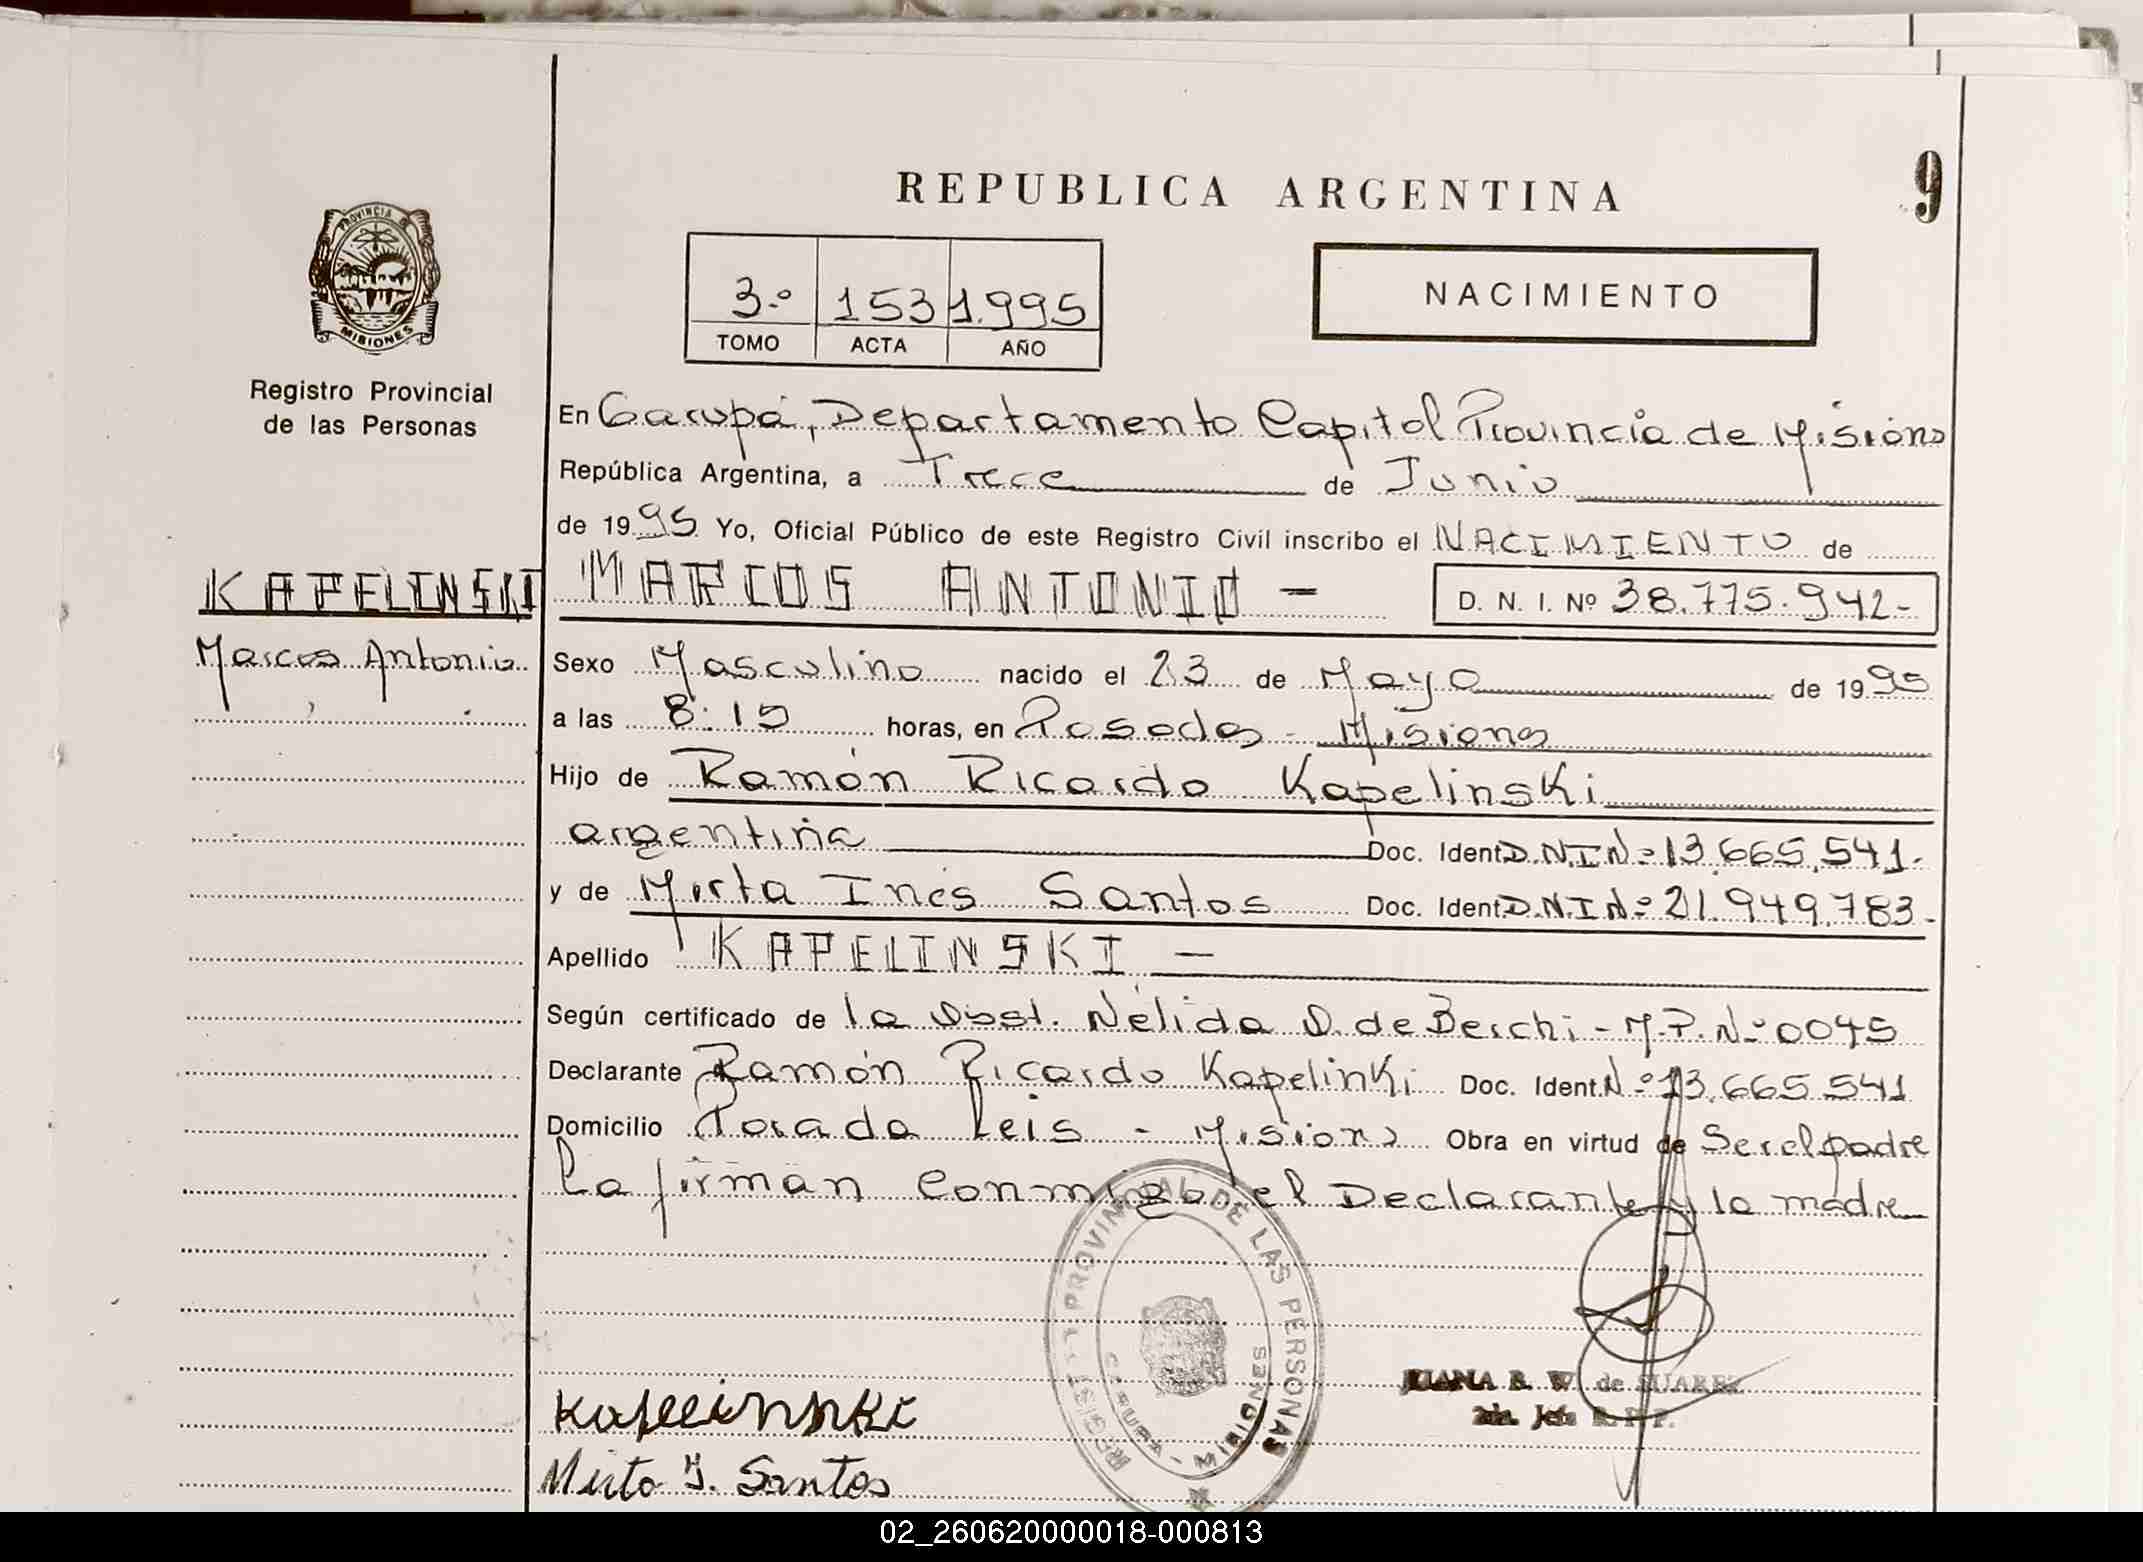 REPUBLICA ARGENTINA
9
PROVINCIA DE
MISIONES
Registro Provincial
de las Personas
3.º 153 1.995
TOMO ACTA AÑO
NACIMIENTO
En Garupá, Departamento Capital Provincia de Misiones
República Argentina, a Trece de Junio
de 1995 Yo, Oficial Público de este Registro Civil inscribo el NACIMIENTO de
KAPELINSKI MARCOS ANTONIO - D. N. I. Nº 38.775.942-
Marcos Antonio
Sexo Masculino nacido el 23 de Mayo de 1995
a las 8:15 horas, en Posadas - Misiones
Hijo de Ramón Ricardo Kapelinski
argentina Doc. Ident. D.N.I Nº 13.665.541-
y de Mirta Inés Santos Doc. Ident. D.N.I Nº 21.949.783-
Apellido KAPELINSKI -
Según certificado de la Obst. Nélida D. de Berchi - M.P. Nº 0045
Declarante Ramón Ricardo Kapelinki Doc. Ident. Nº 13.665.541
Domicilio Posada Leis - Misiones Obra en virtud de Ser el padre
La firman Conmigo el Declarante y la madre
REGISTRO PROVINCIAL DE LAS PERSONAS
GARUPA - MISIONES
JUANA B. W. de SUAREZ
2da. Jefe R. P. P.
Kapelinski
Mirta I. Santos
02_260620000018-000813